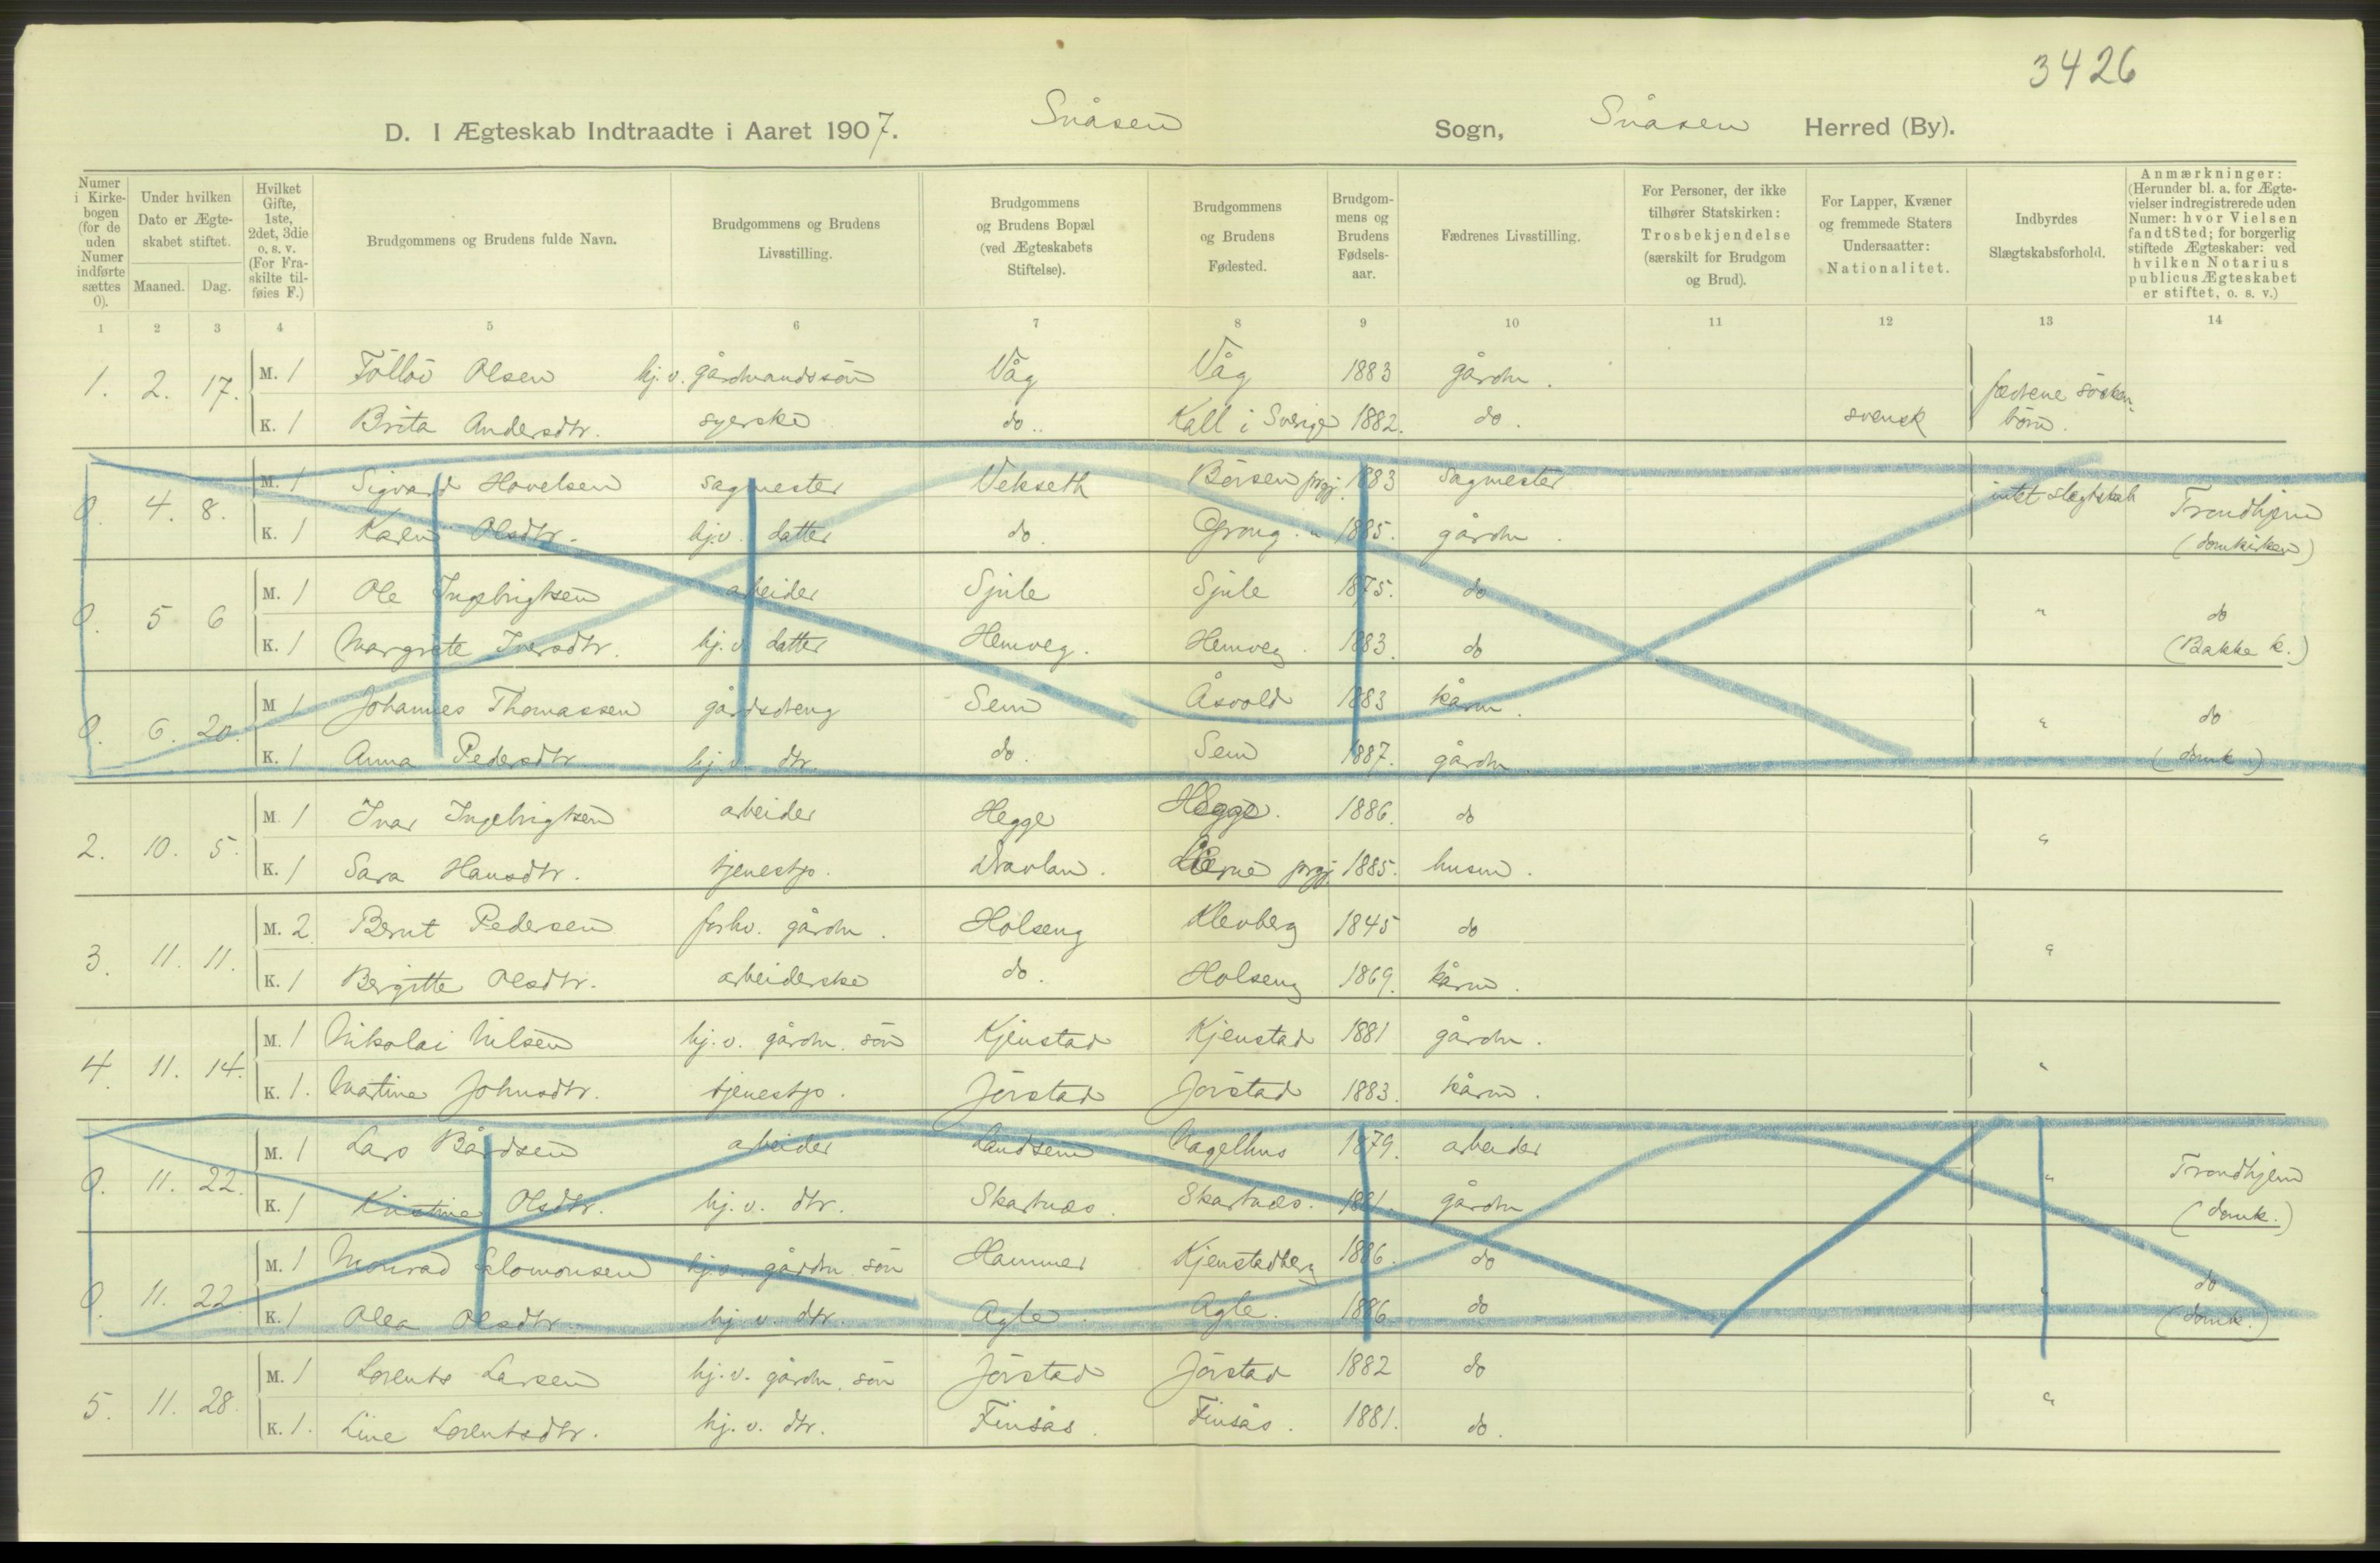 3426
D. I Ægteskab Indtraadte i Aaret 1907. Snåsen Sogn, Snåsen Herred (By).
Numer i Kirkebogen (for de uden Numer indførte sættes 0).
Under hvilken Dato er Ægteskabet stiftet.
Maaned. Dag.
Hvilket Gifte, 1ste, 2det, 3die o. s. v. (For Fraskilte tilføies F.)
Brudgommens og Brudens fulde Navn.
Brudgommens og Brudens Livsstilling.
Brudgommens og Brudens Bopæl (ved Ægteskabets Stiftelse).
Brudgommens og Brudens Fødested.
Brudgommens og Brudens Fødselsaar.
Fædrenes Livsstilling.
For Personer, der ikke tilhører Statskirken: Trosbekjendelse (særskilt for Brudgom og Brud).
For Lapper, Kvæner og fremmede Staters Undersaatter: Nationalitet.
Indbyrdes Slægtskabsforhold.
Anmærkninger: (Herunder bl. a. for Ægtevielser indregistrerede uden Numer: hvor Vielsen fandt Sted; for borgerlig stiftede Ægteskaber: ved hvilken Notarius publicus Ægteskabet er stiftet, o. s. v.)
1 2 3 4 5 6 7 8 9 10 11 12 13 14
1. 2. 17. M. 1 Tølløv Olsen hj. v. gårdmandssøn Våg Våg 1883 gårdm. fædrene søsken-
K. 1 Brita Andersdtr. syerske do.. Kall i Sverige 1882. do. svensk børn.
0. 4. 8. M. 1 Sigvard Hovelsen sagmester Vekseth Børsen prgj. 1883 Sagmester intet slegtskab Trondhjem
K. 1 Karen Olsdtr. hj.v. datter do. Grong. " 1885. gårdm. (domkirken)
0. 5 6 M. 1 Ole Ingebrigtsen arbeider Sjule Sjule 1875. do " do
K. 1 Margrete Iversdtr. hj. v. datter Hemveg. Hemveg. 1883. do (Bakke k.)
0. 6. 20. M 1 Johannes Thomassen gårdsdreng Sem Åsvold 1883 kårm. " do
K. 1 Anna Pedersdtr. hj. v. dtr. do. Sem 1887. gårdm. (domk.)
2. 10. 5. M 1 Ivar Ingebrigtsen arbeider Hegge Hegge. 1886. do "
K. 1 Sara Hansdtr. tjenestp. prgj. 1885. husm.
3. 11. 11. M. 2 Bernt Pedersen forhv. gårdm. Holseng Klevberg 1845 do "
K. 1 Bergitte Olsdtr. arbeiderske do. Holseng 1869. kårm.
4. 11. 14. M. 1 Nikolai Nilsen hj. v. gårdm. søn Kjenstad Kjenstad 1881 gårdm. "
K. 1. Martine Johnsdtr. tjenestp. Jørstad Jørstad 1883. kårm.
0. 11. 22. M. 1 Lars Bårdsen arbeider Landsem Nagelhus 1879. arbeider " Trondhjem
K. 1 Kristine Olsdtr. hj. v. dtr. Skartnæs. Skartnæs. 1881. gårdm (domk.)
0. 11. 22. M. 1 Monrad Salomonsen hj. v. gårdm. søn Hammer Kjenstadberg 1886. do " do
K. 1 Olea Olsdtr. hj. v. dtr. Agle. Agle. 1886 do (domk.)
5. 11. 28. M. 1 Lorents Larsen hj. v. gårdm. søn Jørstad Jørstad 1882 do "
K. 1. Line Lorentsdtr. hj. v. dtr. Finsås. Finsås. 1881. do.